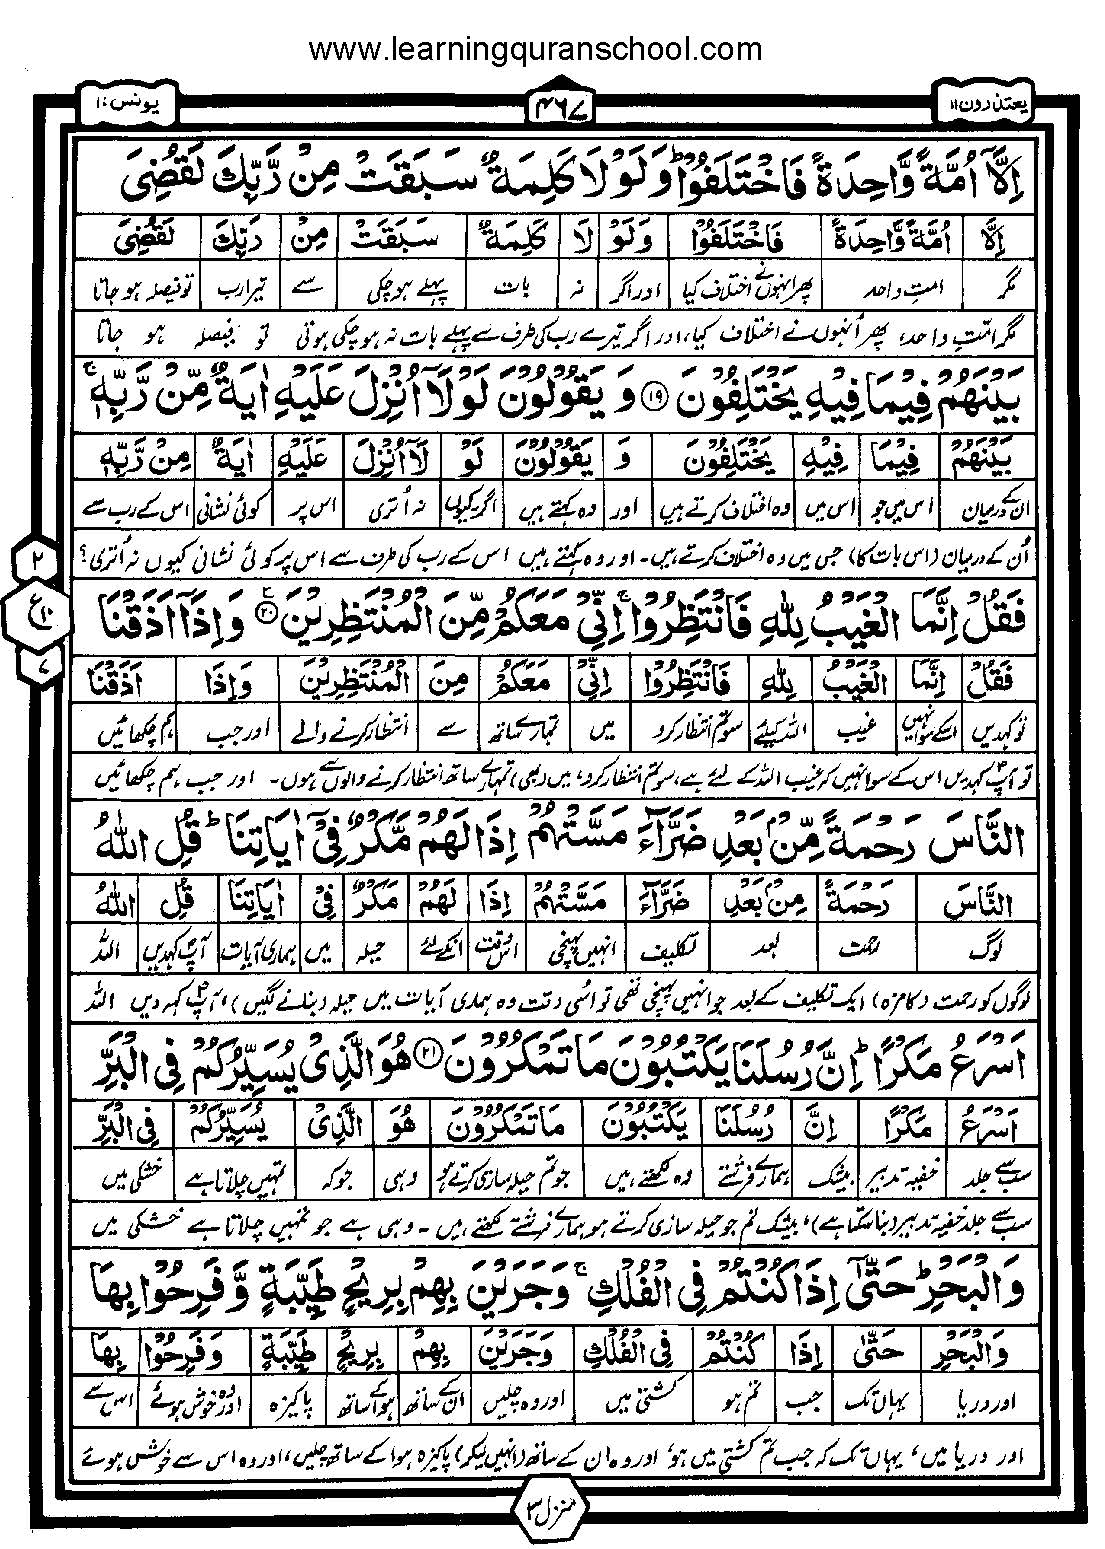 www.learningquranschool.com
یعتذرون ۱۱
۴۶۷
یونس ۱۰
اِلَّاۤ اُمَّةً وَّاحِدَةً فَاخْتَلَفُوْا ؕ وَلَوْلَا كَلِمَةٌ سَبَقَتْ مِنْ رَّبِّكَ لَقُضِیَ
اِلَّا اُمَّةً وَّاحِدَةً فَاخْتَلَفُوْا وَلَوْ لَا كَلِمَةٌ سَبَقَتْ مِنْ رَبِّكَ لَقُضِیَ
مگر امتِ واحد پھر انہوں نے اختلاف کیا اور اگر نہ بات پہلے ہوچکی سے تیرا رب تو فیصلہ ہو جاتا
مگر امّتِ واحد، پھر اُنہوں نے اختلاف کیا، اور اگر تیرے رب کی طرف سے پہلے بات نہ ہوچکی ہوتی تو فیصلہ ہو جاتا
بَیْنَهُمْ فِیْمَا فِیْهِ یَخْتَلِفُوْنَ ۱۹ وَ یَقُوْلُوْنَ لَوْلَاۤ اُنْزِلَ عَلَیْهِ اٰیَةٌ مِّنْ رَّبِّهٖ ۚ
بَیْنَهُمْ فِیْمَا فِیْهِ یَخْتَلِفُوْنَ وَ یَقُوْلُوْنَ لَوْ لَاۤ اُنْزِلَ عَلَیْهِ اٰیَةٌ مِنْ رَّبِّهٖ
ان کے درمیان اس میں جو اس میں وہ اختلاف کرتے ہیں اور وہ کہتے ہیں اگر کیوں نہ اُتری اس پر کوئی نشانی اس کے رب سے
اُن کے درمیان (اس بات کا) جس میں وہ اختلاف کرتے ہیں۔ اور وہ کہتے ہیں اس کے رب کی طرف سے اس پر کوئی نشانی کیوں نہ اُتری؟
۲
ع
۱۰
۷
فَقُلْ اِنَّمَا الْغَیْبُ لِلّٰهِ فَانْتَظِرُوْا ۚ اِنِّیْ مَعَكُمْ مِّنَ الْمُنْتَظِرِیْنَ ۲۰ۧ وَاِذَاۤ اَذَقْنَا
فَقُلْ اِنَّمَا الْغَیْبُ لِلّٰهِ فَانْتَظِرُوْا اِنِّیْ مَعَكُمْ مِنَ الْمُنْتَظِرِیْنَ وَاِذَا اَذَقْنَا
تو کہدیں اسکے سوا نہیں غیب اللہ کیلئے سو تم انتظار کرو میں تمہارے ساتھ سے انتظار کرنے والے اور جب ہم چکھائیں
تو آپؐ کہدیں اس کے سوا نہیں کہ غیب اللہ کے لئے ہے، سو تم انتظار کرو، میں (بھی) تمہارے ساتھ انتظار کرنے والوں سے ہوں۔ اور جب ہم چکھائیں
النَّاسَ رَحْمَةً مِّنْۢ بَعْدِ ضَرَّآءَ مَسَّتْهُمْ اِذَا لَهُمْ مَّكْرٌ فِیْۤ اٰیَاتِنَا ؕ قُلِ اللّٰهُ
النَّاسَ رَحْمَةً مِنْۢ بَعْدِ ضَرَّآءَ مَسَّتْهُمْ اِذَا لَهُمْ مَكْرٌ فِیْ اٰیَاتِنَا قُلِ اللّٰهُ
لوگ رحمت بعد تکلیف انہیں پہنچی اس وقت انکے لئے حیلہ میں ہماری آیات آپؐ کہدیں اللہ
لوگوں کو رحمت (کا مزہ) ایک تکلیف کے بعد جو انہیں پہنچی تھی تو اُسی وقت وہ ہماری آیات میں حیلہ (بنانے لگیں)، آپؐ کہہ دیں اللہ
اَسْرَعُ مَكْرًا ؕ اِنَّ رُسُلَنَا یَكْتُبُوْنَ مَا تَمْكُرُوْنَ ۲۱ هُوَ الَّذِیْ یُسَیِّرُكُمْ فِی الْبَرِّ
اَسْرَعُ مَكْرًا اِنَّ رُسُلَنَا یَكْتُبُوْنَ مَا تَمْكُرُوْنَ هُوَ الَّذِیْ یُسَیِّرُكُمْ فِی الْبَرِّ
سب سے جلد خفیہ تدبیر بیشک ہمارے فرشتے وہ لکھتے ہیں جو تم حیلہ سازی کرتے ہو وہی جو کہ تمہیں چلاتا ہے خشکی میں
سب سے جلد خفیہ تدبیر (بنا سکتا ہے)، بیشک تم جو حیلہ سازی کرتے ہو ہمارے فرشتے لکھتے ہیں۔ وہی ہے جو تمہیں چلاتا ہے خشکی میں
وَالْبَحْرِ ؕ حَتّٰۤی اِذَا كُنْتُمْ فِی الْفُلْكِ ۚ وَجَرَیْنَ بِهِمْ بِرِیْحٍ طَیِّبَةٍ وَّفَرِحُوْا بِهَا
وَالْبَحْرِ حَتّٰی اِذَا كُنْتُمْ فِی الْفُلْكِ وَجَرَیْنَ بِهِمْ بِرِیْحٍ طَیِّبَةٍ وَفَرِحُوْا بِهَا
اور دریا یہاں تک جب تم ہو کشتی میں اور وہ چلیں ان کے ساتھ ہوا کے ساتھ پاکیزہ اور وہ خوش ہوئے اس سے
اور دریا میں، یہاں تک کہ جب تم کشتی میں ہو، اور وہ ان کے ساتھ (انہیں لیکر) پاکیزہ ہوا کے ساتھ چلیں، اور وہ اس سے خوش ہوئے
منزل ۳